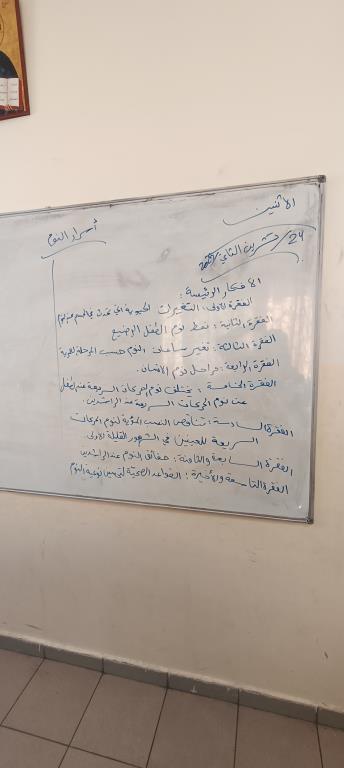 الاثنين
أسرار النوم
24/ تشرين الثاني/ 2025
الأفكار الرئيسة:
الفقرة الأولى: التغيرات الحيوية التي تحدث في الجسم عند النوم
الفقرة الثانية: نمط نوم الطفل الوضيع
الفقرة الثالثة: تغير ساعات النوم حسب المرحلة العمرية
الفقرة الرابعة: مراحل نوم الانسان.
الفقرة الخامسة: يختلف نوم الحركات السريعة عند الطفل
عن نوم الحركات السريعة عند الراشدين.
الفقرة السادسة: تناقص النسب المئوية لنوم الحركات
السريعة للجنين في الشهور القليلة الأولى.
الفقرة السابعة والثامنة: حقائق النوم عند الراشدين
الفقرة التاسعة والأخيرة: القواعد الصحية لتحسين نوعية النوم